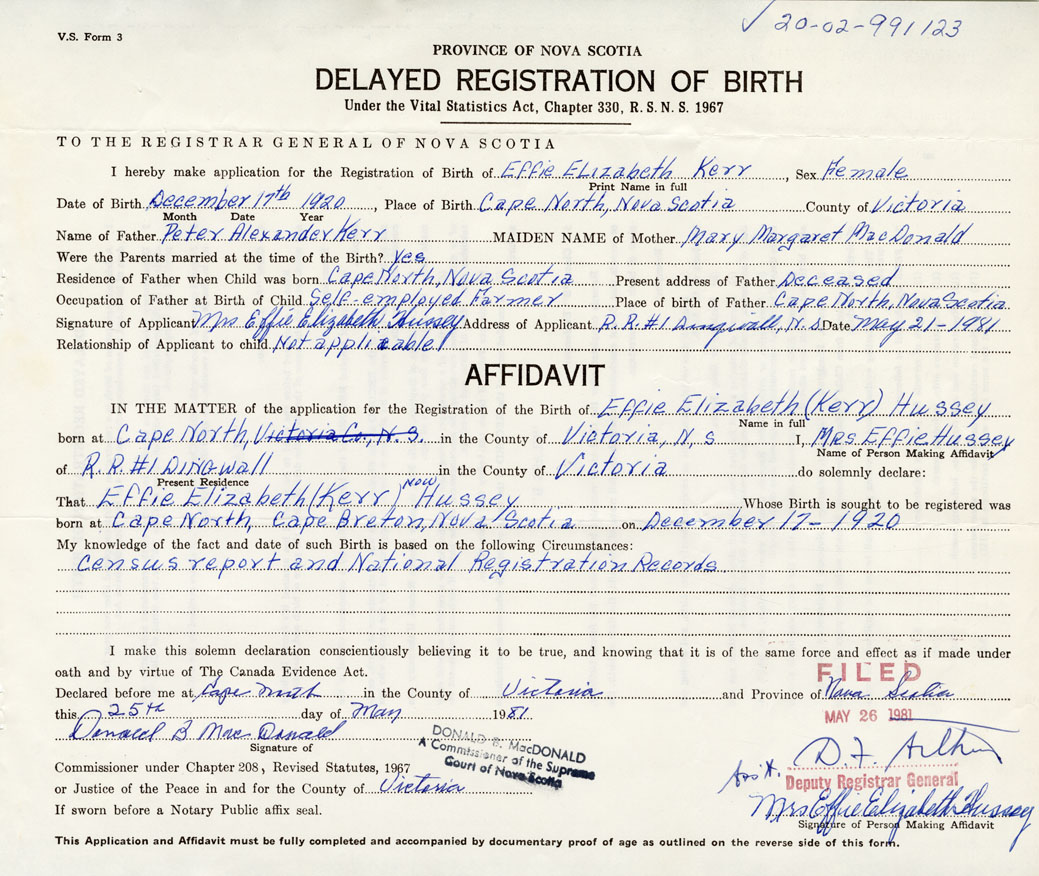 ✓ 20-02-991123
V.S. Form 3
PROVINCE OF NOVA SCOTIA
DELAYED REGISTRATION OF BIRTH
Under the Vital Statistics Act, Chapter 330, R. S. N. S. 1967
TO THE REGISTRAR GENERAL OF NOVA SCOTIA
I hereby make application for the Registration of Birth of Effie Elizabeth Kerr, Sex Female
Print Name in full
Date of Birth December 17th 1920, Place of Birth Cape North, Nova Scotia County of Victoria
Month Date Year
Name of Father Peter Alexander Kerr MAIDEN NAME of Mother Mary Margaret MacDonald
Were the Parents married at the time of the Birth? yes
Residence of Father when Child was born Cape North, Nova Scotia Present address of Father Deceased
Occupation of Father at Birth of Child Self-employed Farmer Place of birth of Father Cape North, Nova Scotia
Signature of Applicant Mrs Effie Elizabeth Hussey Address of Applicant R.R.#1 Dingwall, N.S Date May 21-1981
Relationship of Applicant to child Not applicable
AFFIDAVIT
IN THE MATTER of the application for the Registration of the Birth of Effie Elizabeth (Kerr) Hussey
Name in full
born at Cape North, Victoria Co., N.S. in the County of Victoria, N.S I, Mrs Effie Hussey
Name of Person Making Affidavit
of R.R.#1 Dingwall in the County of Victoria do solemnly declare:
Present Residence
That Effie Elizabeth (Kerr) now Hussey Whose Birth is sought to be registered was
born at Cape North, Cape Breton, Nova Scotia on December 17-1920
My knowledge of the fact and date of such Birth is based on the following Circumstances:
Census report and National Registration Records
I make this solemn declaration conscientiously believing it to be true, and knowing that it is of the same force and effect as if made under
oath and by virtue of The Canada Evidence Act.
FILED
Declared before me at Cape North in the County of Victoria and Province of Nova Scotia
this 25th day of May 1981
MAY 26 1981
Donald B MacDonald
Signature of
DONALD B. MacDONALD
A Commissioner of the Supreme
Court of Nova Scotia
Commissioner under Chapter 208, Revised Statutes, 1967
or Justice of the Peace in and for the County of Victoria
If sworn before a Notary Public affix seal.
Ass't.
Deputy Registrar General
Mrs Effie Elizabeth Hussey
Signature of Person Making Affidavit
This Application and Affidavit must be fully completed and accompanied by documentary proof of age as outlined on the reverse side of this form.